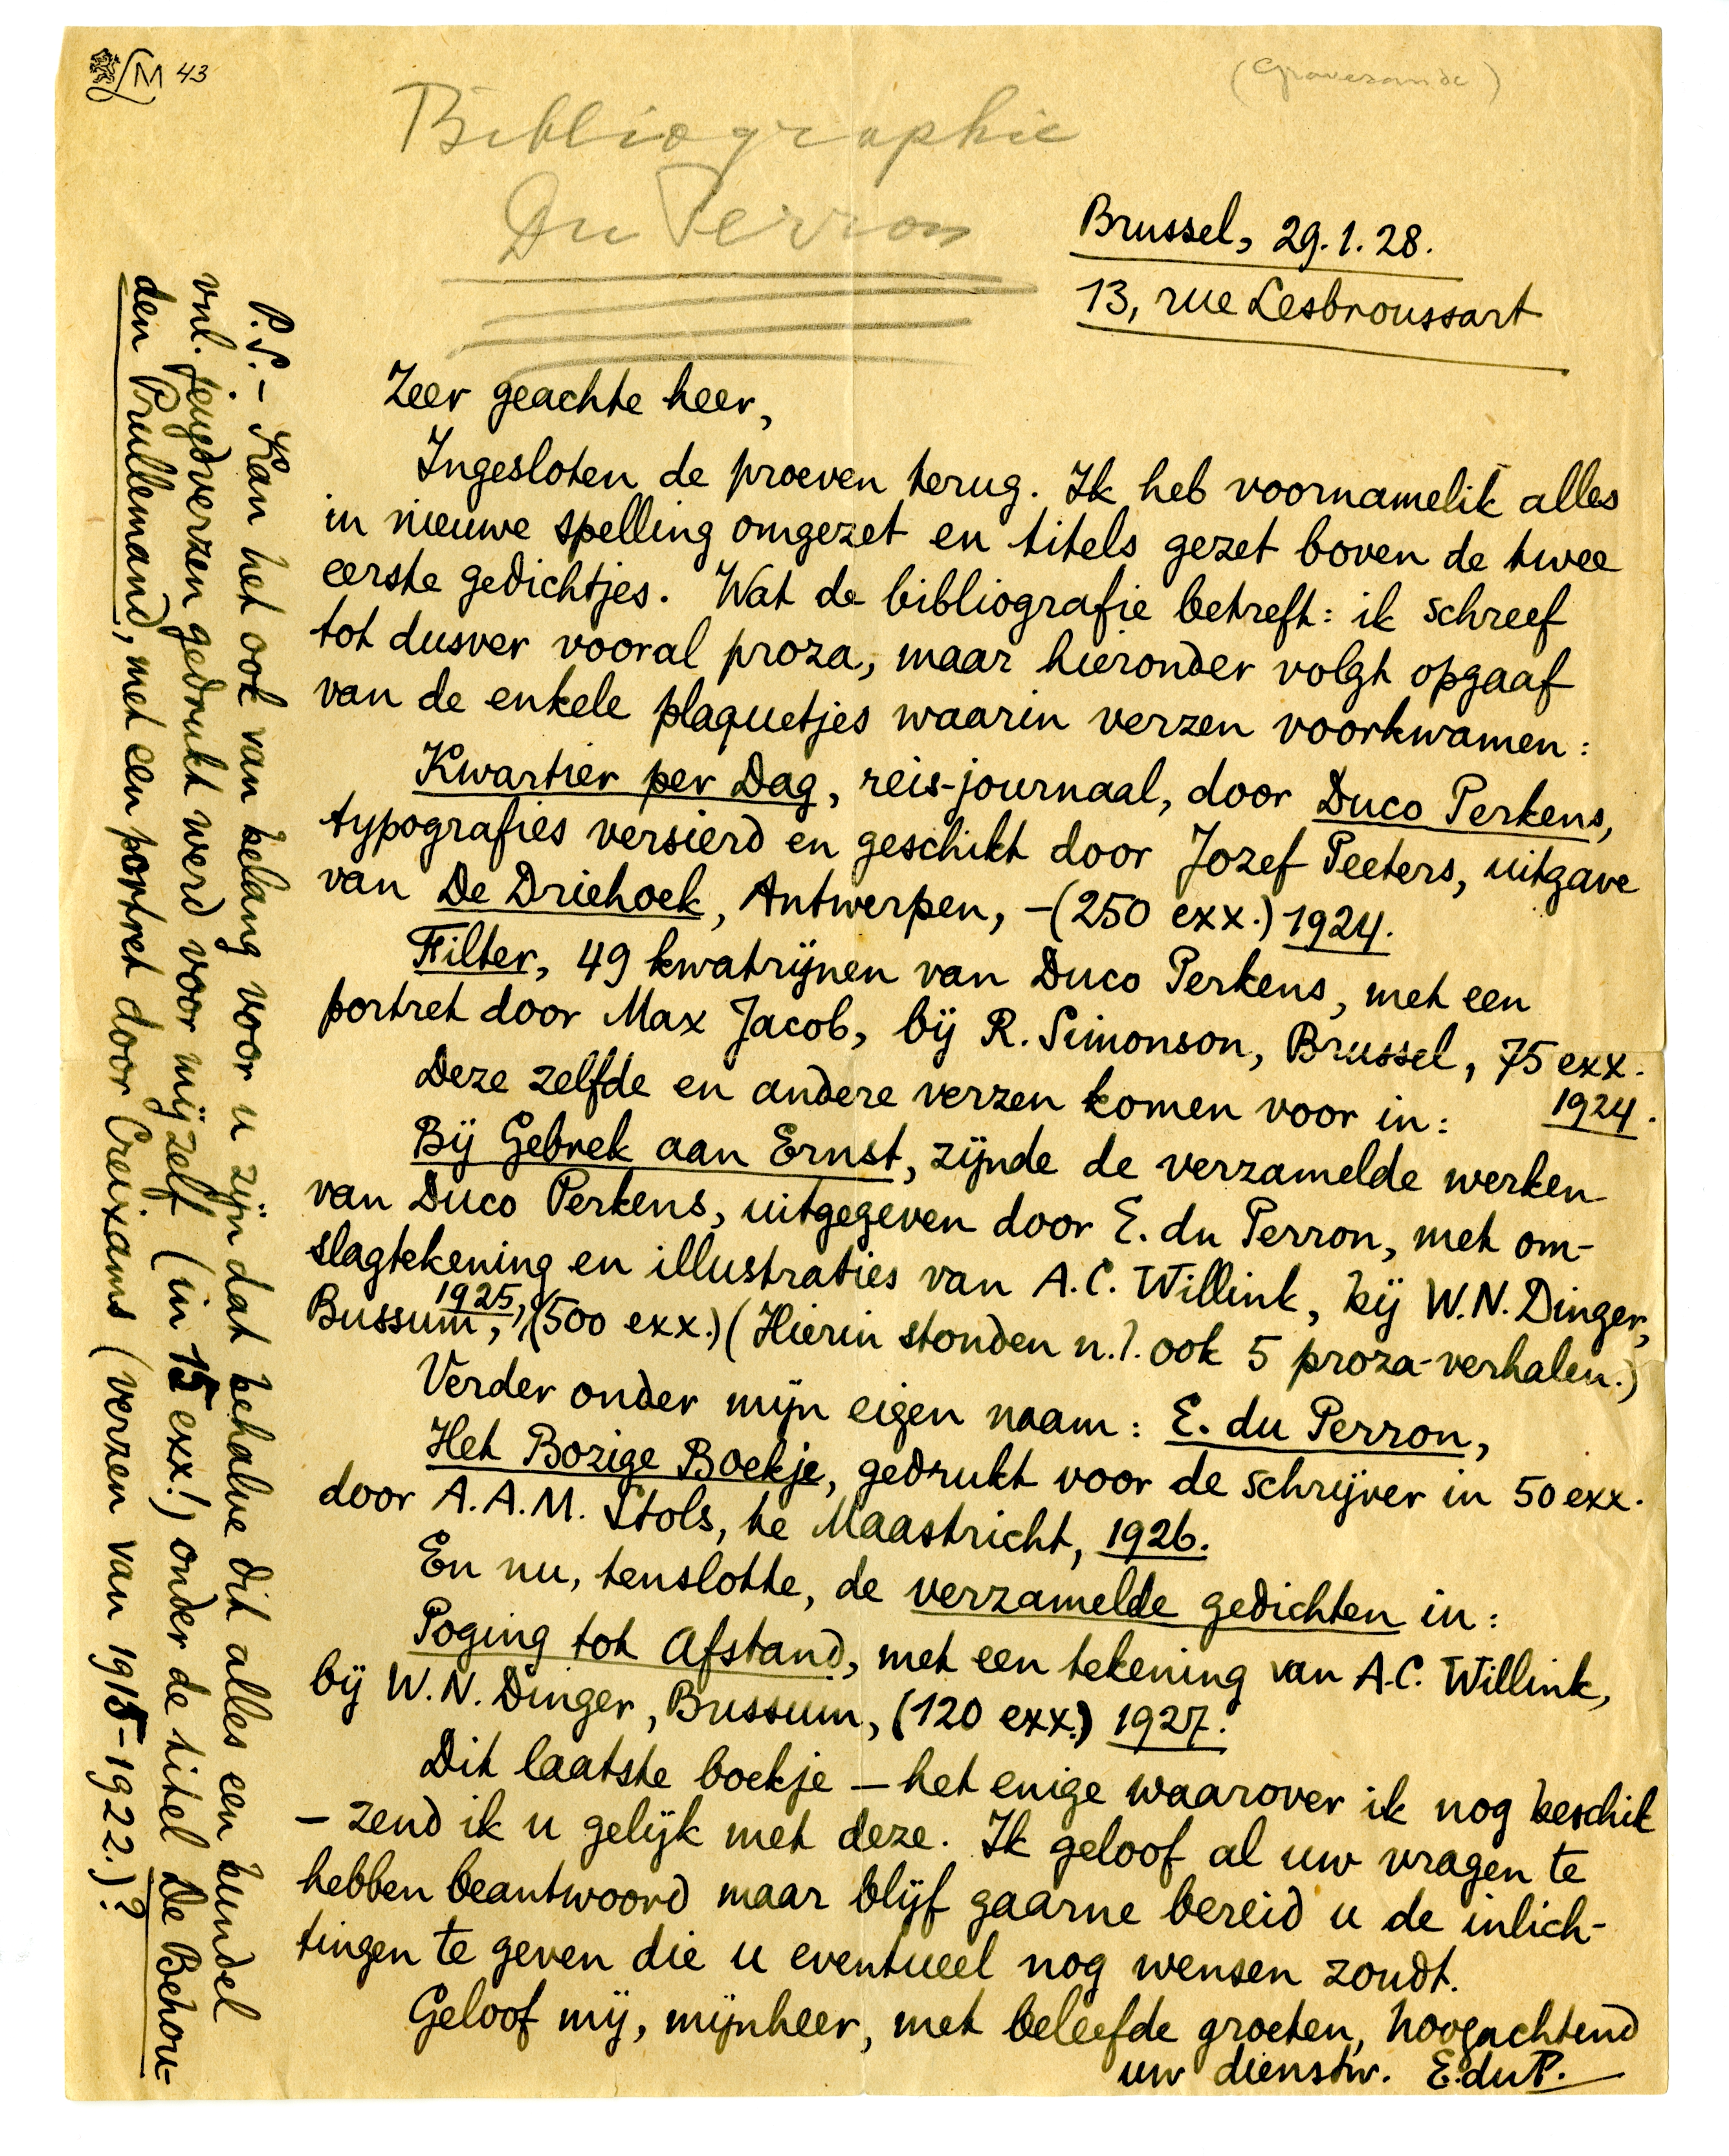 LM 43
(Gravesande)
Bibliographie
Du Perron
Brussel, 29.1.28.
13, rue Lesbroussart
Zeer geachte heer,
Ingesloten de proeven terug. Ik heb voornamelik alles
in nieuwe spelling omgezet en titels gezet boven de twee
eerste gedichtjes. Wat de bibliografie betreft: ik schreef
tot dusver vooral proza, maar hieronder volgt opgaaf
van de enkele plaquetjes waarin verzen voorkwamen:
Kwartier per Dag, reis-journaal, door Duco Perkens,
typografies versierd en geschikt door Jozef Peeters, uitgave
van De Driehoek, Antwerpen, - (250 exx.) 1924.
Filter, 49 kwatrijnen van Duco Perkens, met een
portret door Max Jacob, bij R. Simonson, Brussel, 75 exx.
1924.
Deze zelfde en andere verzen komen voor in:
Bij Gebrek aan Ernst, zijnde de verzamelde werken
van Duco Perkens, uitgegeven door E. du Perron, met om-
slagtekening en illustraties van A.C. Willink, bij W.N. Dinger,
Bussum, 1925, (500 exx.) (Hierin stonden n.l. ook 5 proza-verhalen.)
Verder onder mijn eigen naam: E. du Perron,
Het Bozige Boekje, gedrukt voor de schrijver in 50 exx.
door A.A.M. Stols, te Maastricht, 1926.
En nu, tenslotte, de verzamelde gedichten in:
Poging tot Afstand, met een tekening van A.C. Willink,
bij W.N. Dinger, Bussum, (120 exx.) 1927.
Dit laatste boekje — het enige waarover ik nog beschik
— zend ik u gelijk met deze. Ik geloof al uw vragen te
hebben beantwoord maar blijf gaarne bereid u de inlich-
tingen te geven die u eventueel nog wensen zoudt.
Geloof mij, mijnheer, met beleefde groeten, hoogachtend
uw dienstw. E.duP.
P.S. - Kan het ook van belang voor u zijn dat behalve dit alles een bundel
vnl. jeugdverzen gedrukt werd voor mijzelf (in 15 exx!) onder de titel De Behou-
den Prullemand, met een portret door Creixams (verzen van 1915-1922.)?